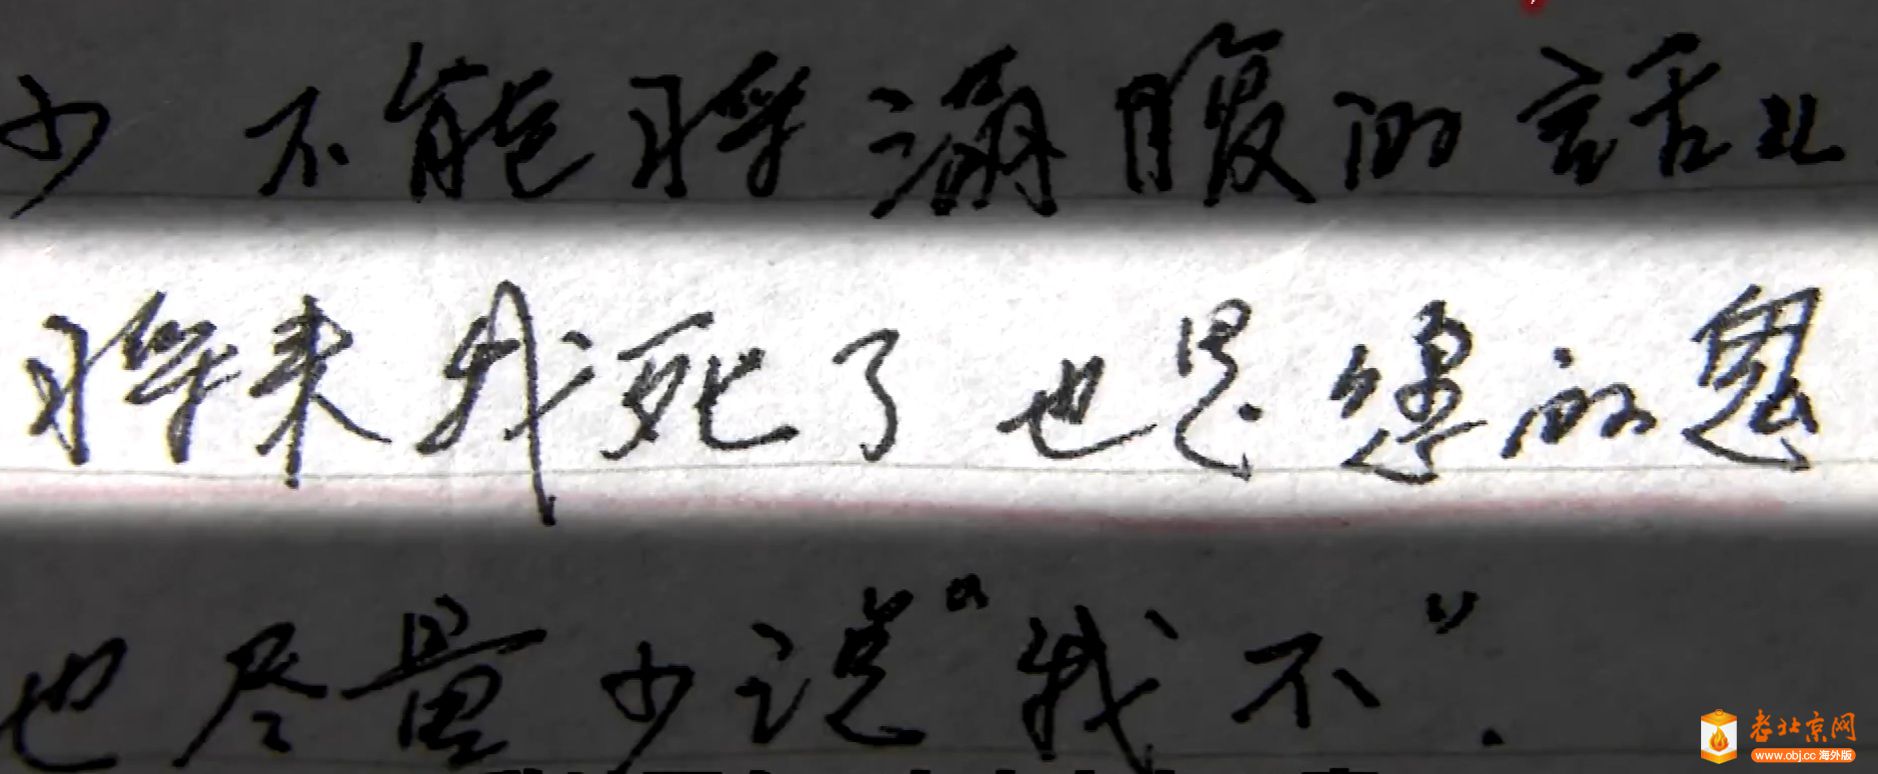 少 不能将满腹的话让
将来我死了也是缠的鬼
也尽量少说“我不”.
老北京网
www.obj.cc 海外版